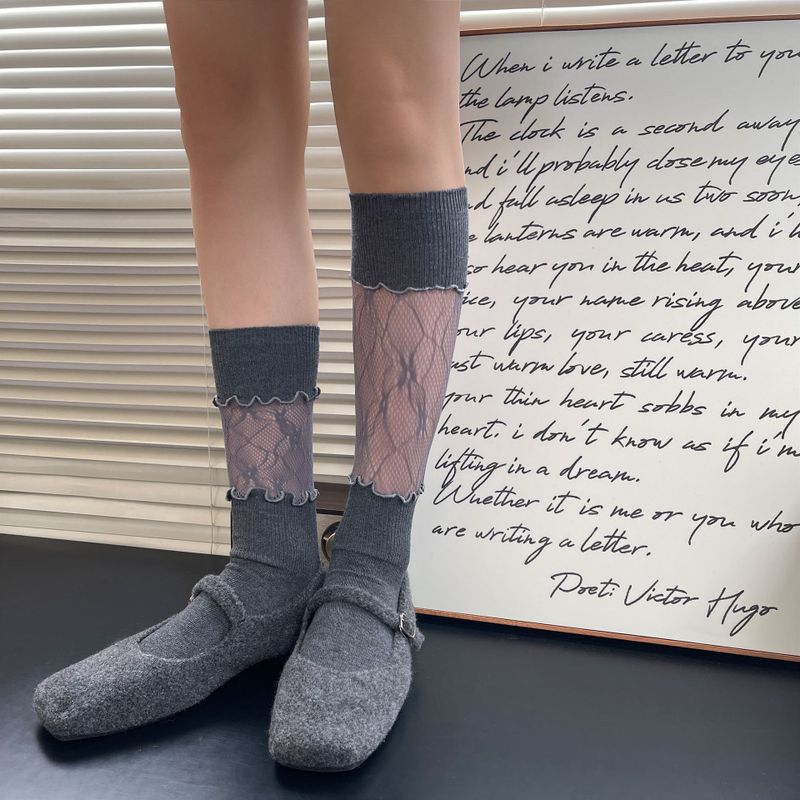 When i write a letter to you
the lamp listens.
The clock is a second away
nd i'll probably close my eye
d fall asleep in us two soon,
e lanterns are warm, and i'll
so hear you in the heat, your
ice, your name rising above
our lips, your caress, your
ast warm love, still warm.
your thin heart sobbs in my
heart. i don't know as if i'm
lifting in a dream.
Whether it is me or you who
are writing a letter.
Poet: Victor Hugo